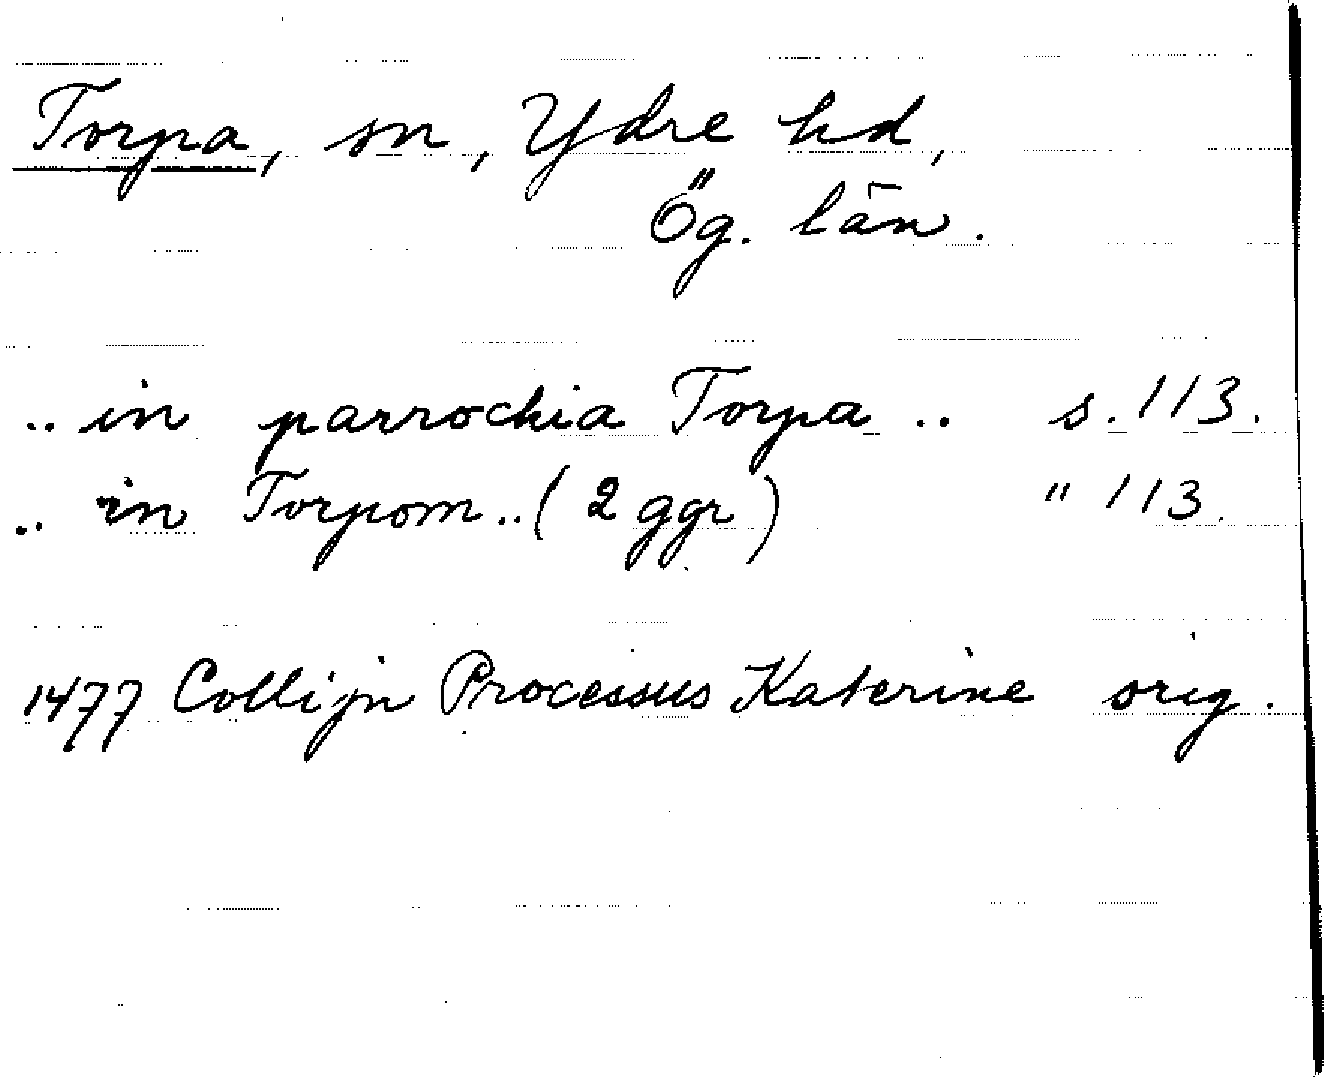 Torpa, sn, Ydre hd,
Ög. län.
.. in parrochia Torpa .. s. 113.
.. in Torpom .. (2 ggr) " 113.
1477 Collijn Processus Katerine orig.